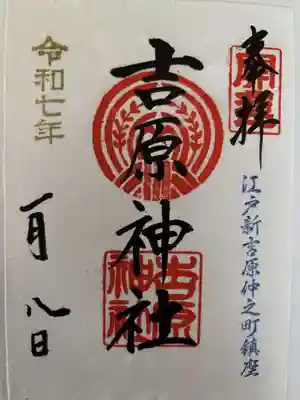 奉拝
開運
江戸新吉原仲之町鎮座
吉原神社
吉原神社
令和七年
一月八日